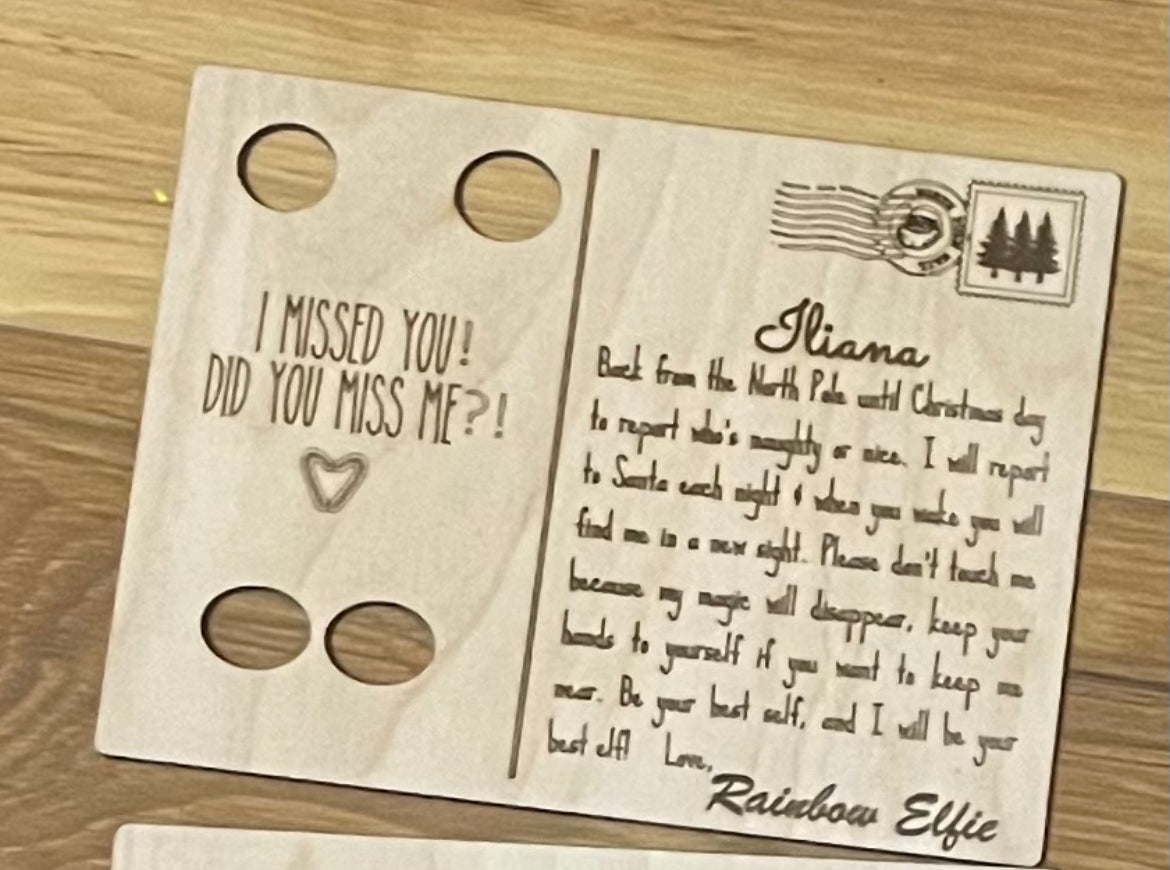 I MISSED YOU!
DID YOU MISS ME?!
Iliana
Back from the North Pole until Christmas day
to report who's naughty or nice. I will report
to Santa each night & when you wake you will
find me in a new sight. Please don't touch me
because my magic will disappear, keep your
hands to yourself if you want to keep me
near. Be your best self, and I will be your
best elf! Love,
Rainbow Elfie